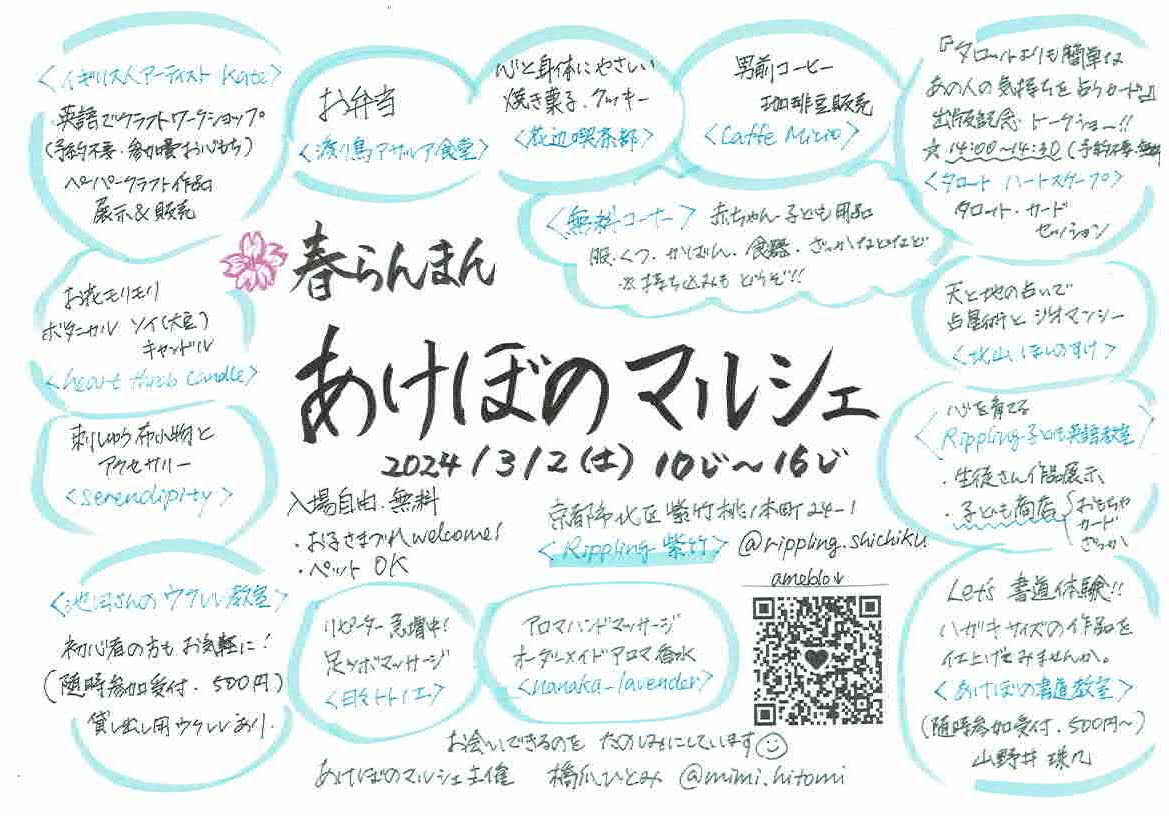 <イギリス人アーティスト Kate>
英語でクラフトワークショップ
(予約不要・参加費お心もち)
ペーパークラフト作品
展示&販売
お弁当
<渡り鳥アサルア食堂>
心と身体にやさしい
焼き菓子・クッキー
<花辺喫茶部>
男前コーヒー
珈琲豆販売
<Caffe Micio>
『タロットよりも簡単な
あの人の気持ちを占うカード』
出版記念トークショー!!
☆14:00〜14:30(予約不要・無料
<タロット ハートスケープ>
タロット・カード
セッション
<無料コーナー> 赤ちゃん・子ども用品
服・くつ・かばん・食器・ざっかなどなど
※持ち込みも どうぞ!!
春らんまん
あけぼのマルシェ
2024/3/2(土) 10じ〜16じ
お花モリモリ
ボタニカル ソイ(大豆)
キャンドル
<heart Hurb Candle>
天と地の占いで
占星術と ジオマンシー
<北山 ほしのすけ>
刺しゅう布小物と
アクセサリー
<Serendipity>
心を育てる
Rippling子ども英語教室
・生徒さん作品展示
・子ども商店 おもちゃ
カード
ざっか
入場自由・無料
・お子さまづれwelcome!
・ペット OK
京都市北区紫竹桃ノ本町24-1
<Rippling 紫竹> @rippling.shichiku
ameblo↓
<池田さんのウクレレ教室>
初心者の方も お気軽に!
(随時参加受付・500円)
貸し出し用ウクレレあり.
リピーター 急増中!
足ツボマッサージ
アロマハンドマッサージ
オーダーメイドアロマ香水
<nanaka_lavender>
Let's 書道体験!!
ハガキサイズの作品を
仕上げてみませんか。
<あけぼの書道教室>
(随時参加受付・500円〜)
山野井 珠几
お会いできるのを たのしみにしています
あけぼのマルシェ主催 橋爪ひとみ @mimi.hitomi